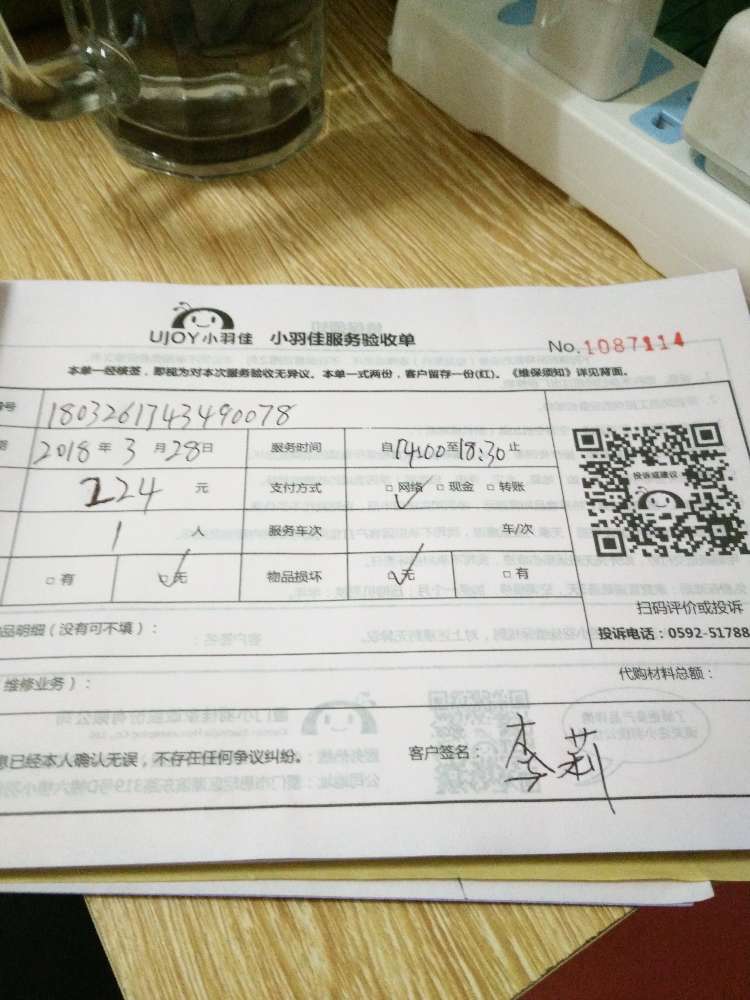 UJOY小羽佳 小羽佳服务验收单
No.1087114
本单一经核签，即视为对本次服务验收无异议。本单一式两份，客户留存一份(红)。《维保须知》详见背面。
号 1803261743490078
2018年3月28日 服务时间 自14:00至18:30止
224元 支付方式 □网络 □现金 □转账
1人 服务车次 车/次
□有 □无 物品损坏 □无 □有
投诉或建议
扫码评价或投诉
品明细（没有可不填）：
投诉电话：0592-51788
维修业务）：
代购材料总额：
息已经本人确认无误，不存在任何争议纠纷。
客户签名：李莉